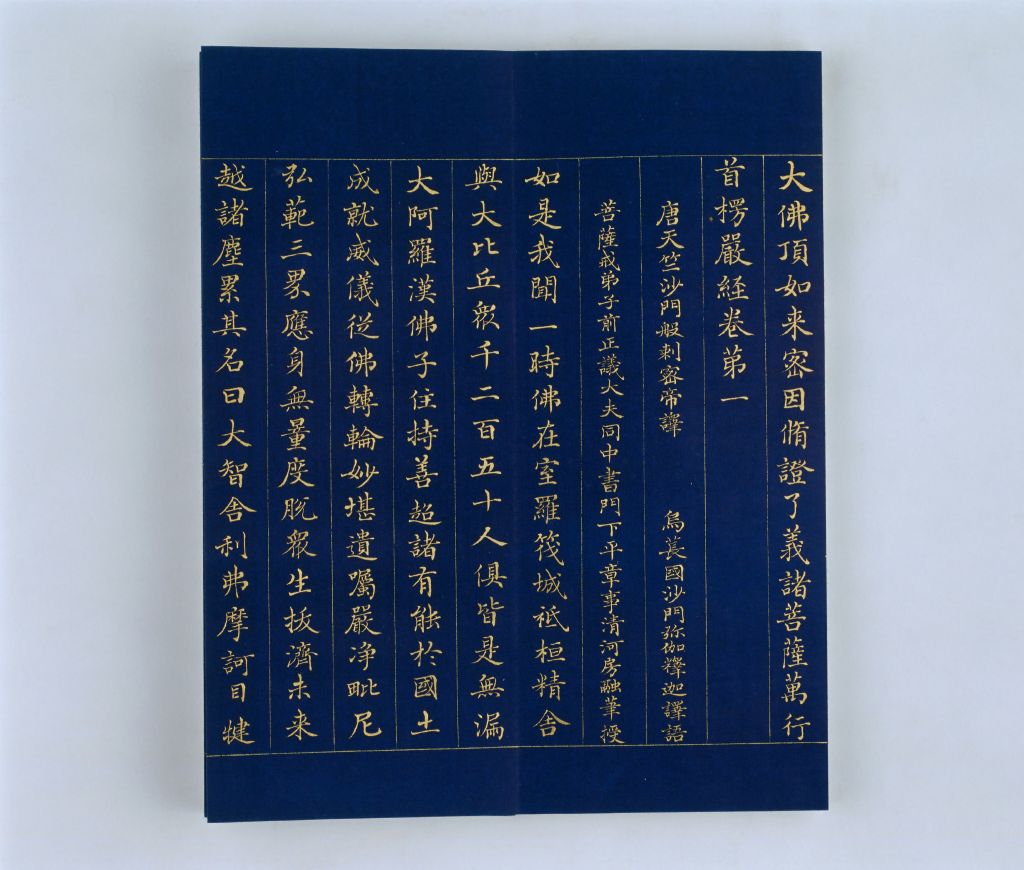 大佛頂如来密因脩證了義諸菩薩萬行
首楞嚴経卷苐一
唐天竺沙門般剌密帝譯　烏萇國沙門弥伽釋迦譯語
菩薩戒弟子前正議大夫同中書門下平章事清河房融筆授
如是我聞一時佛在室羅筏城祇桓精舎
與大比丘眾千二百五十人俱皆是無漏
大阿羅漢佛子住持善超諸有能於國土
成就威儀従佛轉輪妙堪遺囑嚴净毗尼
弘範三界應身無量度脫眾生拔濟未来
越諸塵累其名曰大智舎利弗摩訶目犍